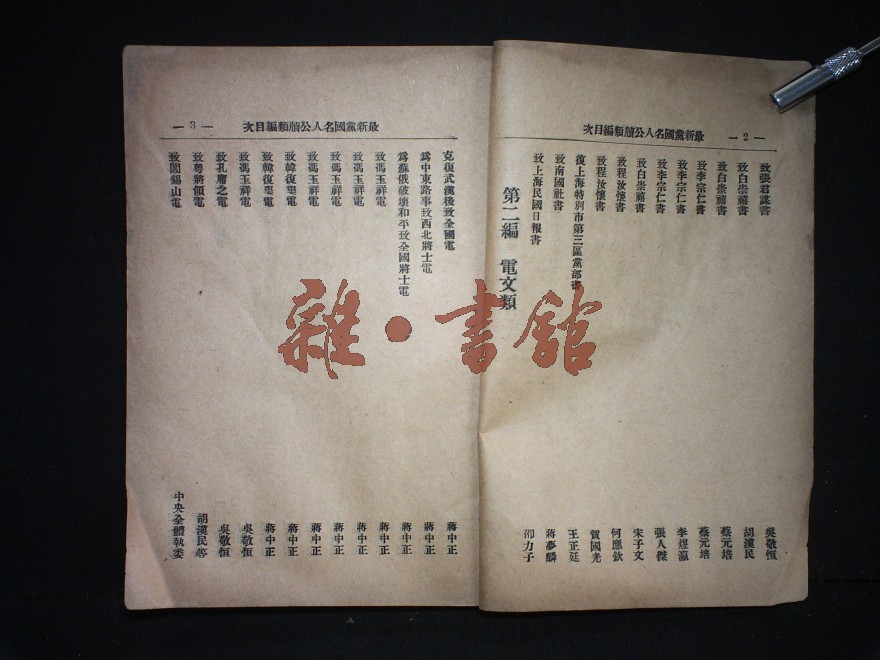 最新黨國名人公牘類編目次
— 2 —
致張君謀書 吳敬恒
致白崇禧書 胡漢民
致白崇禧書 蔡元培
致李宗仁書 蔡元培
致李宗仁書 李煜瀛
致李宗仁書 張人傑
致白崇禧書 宋子文
致程汝懷書 何應欽
致程汝懷書 賀國光
復上海特別市第三區黨部書 王正廷
致南國社書 蔣夢麟
致上海民國日報書 邵力子
第二編 電文類
最新黨國名人公牘類編目次
— 3 —
克復武漢後致全國電 蔣中正
為中東路事致西北將士電 蔣中正
為蘇俄破壞和平致全國將士電 蔣中正
致馮玉祥電 蔣中正
致馮玉祥電 蔣中正
致馮玉祥電 蔣中正
致馮玉祥電 蔣中正
致韓復榘電 蔣中正
致韓復榘電 蔣中正
致馮玉祥電 吳敬恒
致孔庸之電 吳敬恒
致粵將領電 胡漢民等
致閻錫山電 中央全體執委
雜·書舘